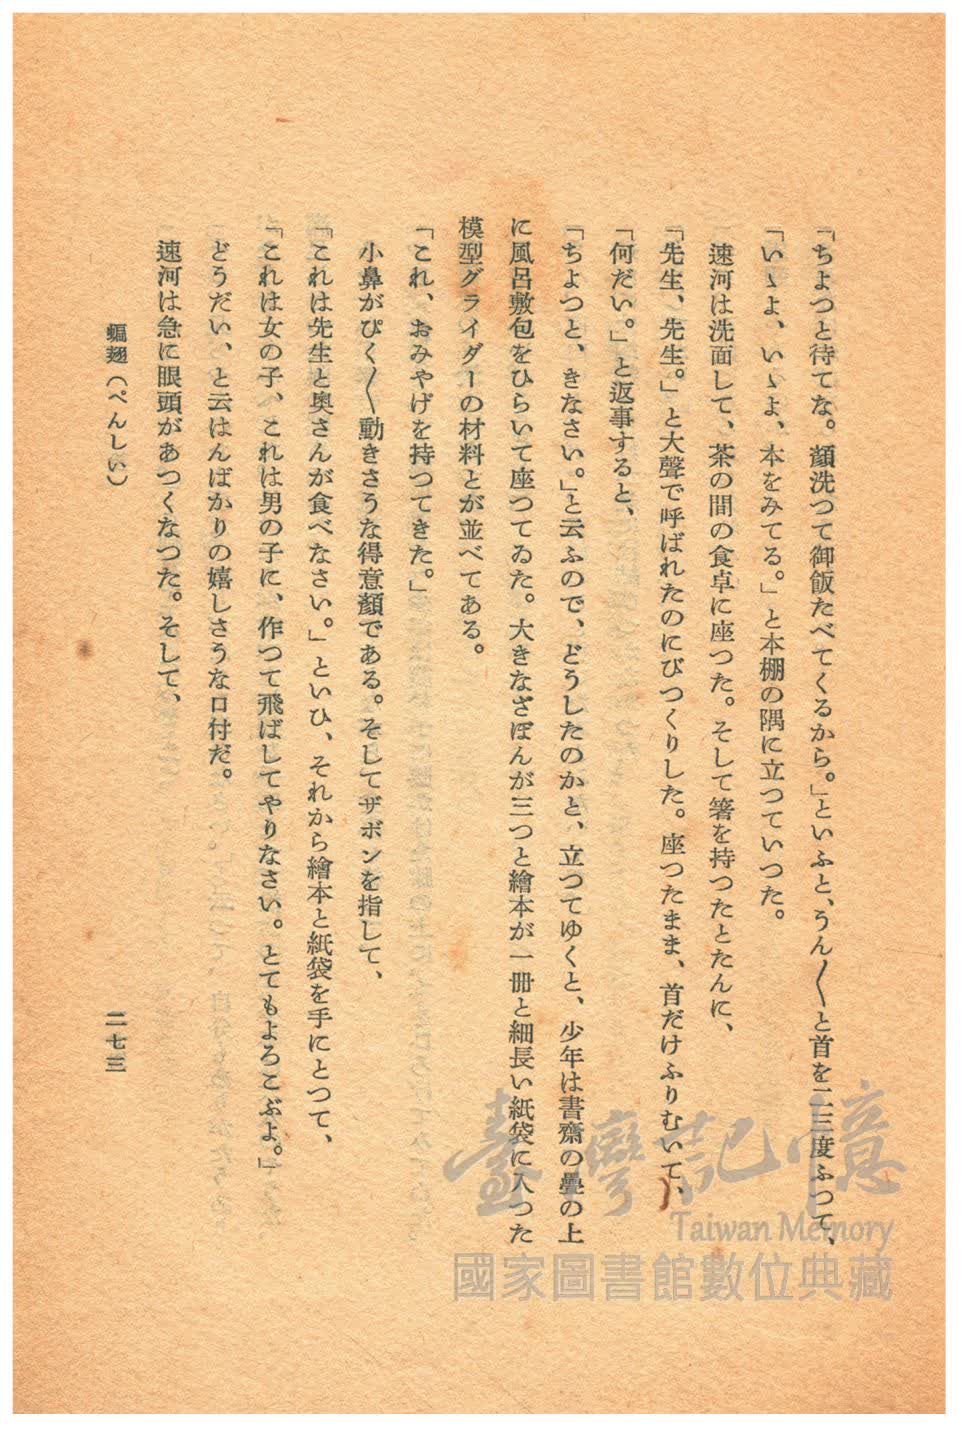 「ちよつと待てな。顔洗つて御飯たべてくるから。」といふと、うん〳〵と首を二三度ふつて、
「いゝよ、いゝよ、本をみてる。」と本棚の隅に立つていつた。
速河は洗面して、茶の間の食卓に座つた。そして箸を持つたとたんに、
「先生、先生。」と大聲で呼ばれたのにびつくりした。座つたまま、首だけふりむいて、
「何だい。」と返事すると、
「ちよつと、きなさい。」と云ふので、どうしたのかと、立つてゆくと、少年は書齋の疊の上
に風呂敷包をひらいて座つてゐた。大きなざぼんが三つと繪本が一冊と細長い紙袋に入つた
模型グライダーの材料とが並べてある。
「これ、おみやげを持つてきた。」
小鼻がぴく〳〵動きさうな得意顏である。そしてザボンを指して、
「これは先生と奥さんが食べなさい。」といひ、それから繪本と紙袋を手にとつて、
「これは女の子、これは男の子に、作つて飛ばしてやりなさい。とてもよろこぶよ。」
どうだい、と云はんばかりの嬉しさうな口付だ。
速河は急に眼頭があつくなつた。そして、
蝙翅（ぺんしい）
二七三
臺灣記憶
Taiwan Memory
國家圖書館數位典藏